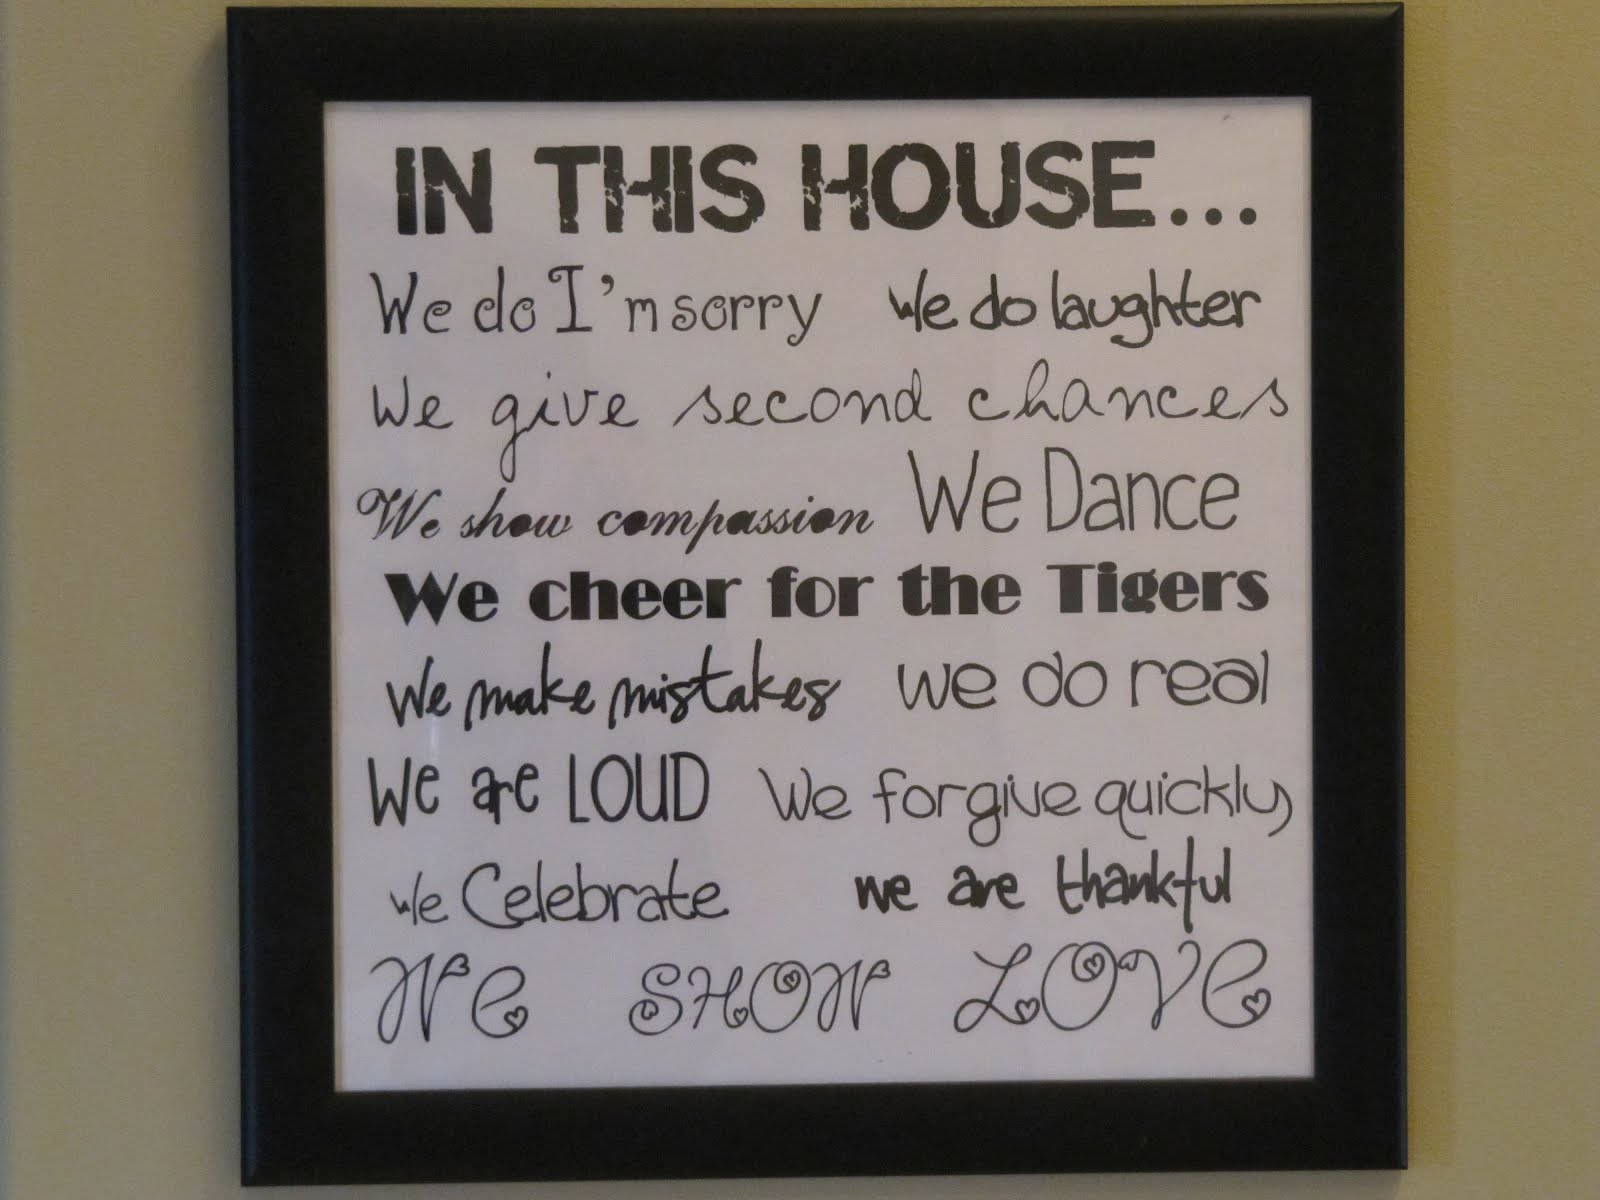 IN THIS HOUSE...
We do I'm sorry We do laughter
We give second chances
We show compassion We Dance
We cheer for the Tigers
We make mistakes we do real
We are LOUD We forgive quickly
We Celebrate we are thankful
WE SHOW LOVE